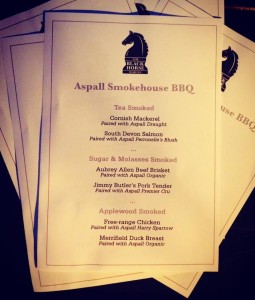 THE
BLACK
HORSE
Aspall Smokehouse BBQ
Tea Smoked
Cornish Mackerel
Paired with Aspall Draught
South Devon Salmon
Paired with Aspall Perronelle's Blush
...
Sugar & Molasses Smoked
Aubrey Allen Beef Brisket
Paired with Aspall Organic
Jimmy Butler's Pork Tender
Paired with Aspall Premier Cru
...
Applewood Smoked
Free-range Chicken
Paired with Aspall Harry Sparrow
Merrifield Duck Breast
Paired with Aspall Organic